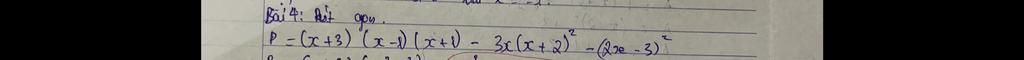 Bài 4: Rút gọn.
P = (x+3) (x-1) (x+1) - 3x(x+2)² - (2x-3)²